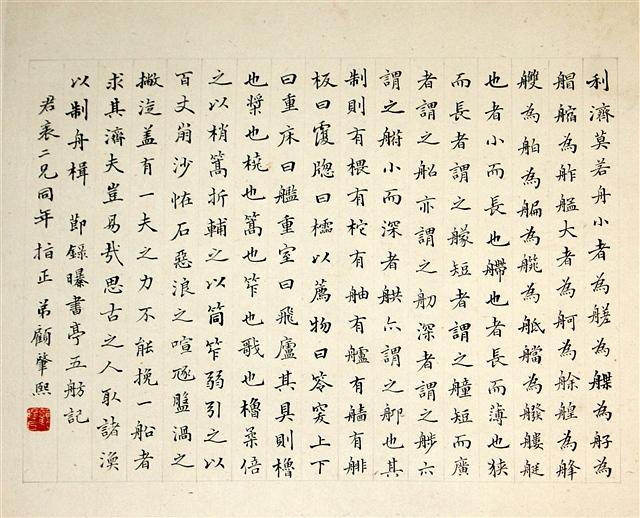 利濟莫若舟小者為艖為艓為艀為
艒䑿為舴艋大者為舸為艅艎為艂
艭為舶為艑為艞為䑠艡為艬艛艇
也者小而長也艜也者長而薄也狹
而長者謂之艨短者謂之艟短而廣
者謂之船亦謂之舠深者謂之䑰六
謂之䑧小而深者䑪六謂之䑲也其
制則有椳有柁有舳有艫有艢有
板曰覆牕曰檽以薦物曰笭窔上下
曰重床曰艦重室曰飛廬其具則櫓
也槳也橈也篙也笮也戤也櫓桼倍
之以梢篙折輔之以筒笮弱引之以
百丈崩沙恠石惡浪之喧豗盬渦之
撇汔盖有一夫之力不能挽一船者
求其濟夫豈易哉思古之人取諸渙
以制舟楫 節錄曝書亭五舫記
君哀二兄同年指正 弟顧肇熙